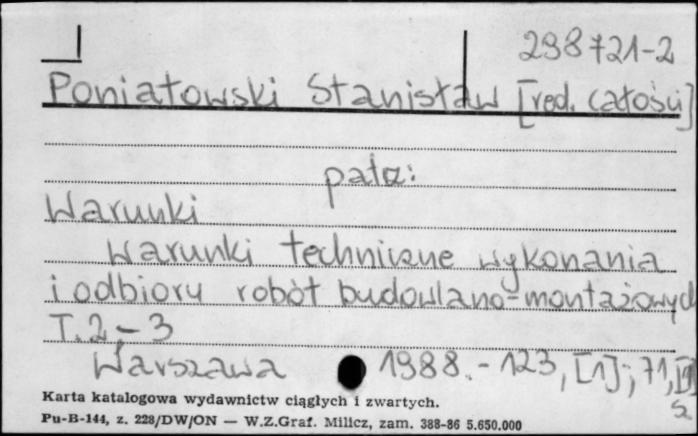 298721-2
Poniatowski Stanisław [red. całości]
patrz:
Warunki
Warunki techniczne wykonania
i odbioru robót budowlano-montażowych
T. 2 - 3
Warszawa 1988. - 123, [1]; 71, [1]
s
Karta katalogowa wydawnictw ciągłych i zwartych.
Pu-B-144, z. 228/DW/ON — W.Z.Graf. Milicz, zam. 388-86 5.650.000